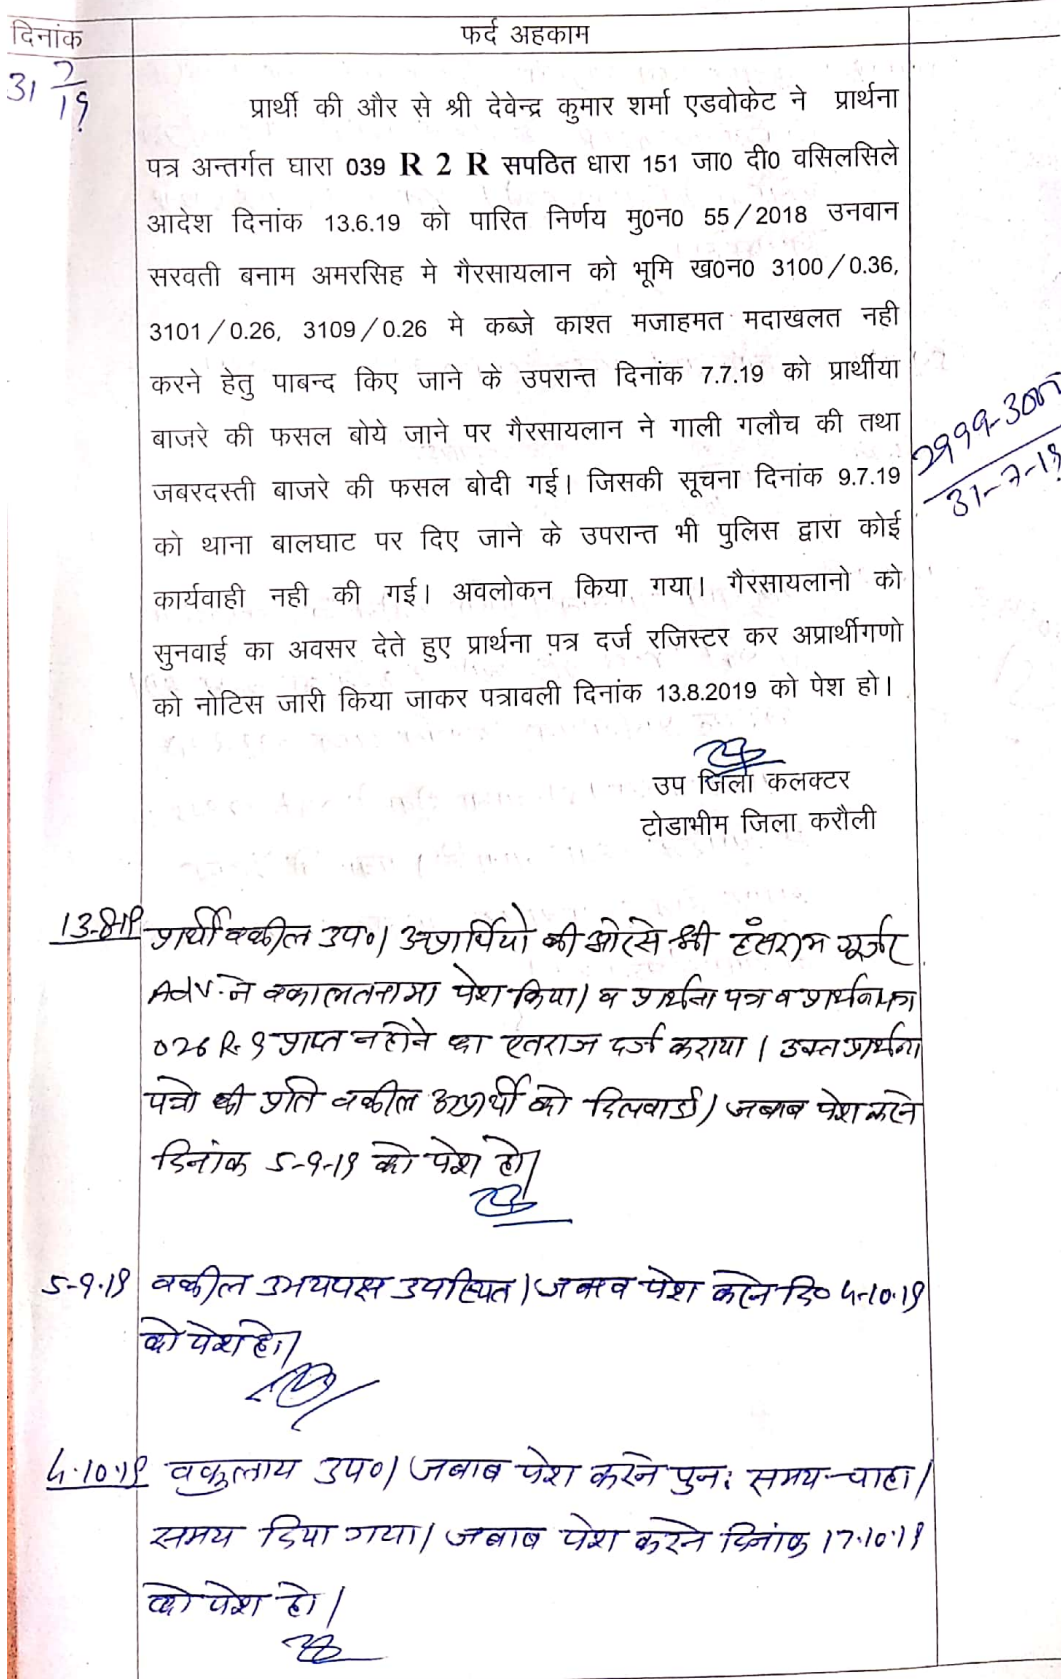 दिनांक
फर्द अहकाम
31 7/19
प्रार्थी की और से श्री देवेन्द्र कुमार शर्मा एडवोकेट ने प्रार्थना
पत्र अन्तर्गत घारा 039 R 2 R सपठित धारा 151 जा0 दी0 वसिलसिले
आदेश दिनांक 13.6.19 को पारित निर्णय मु0न0 55/2018 उनवान
सरवती बनाम अमरसिह मे गैरसायलान को भूमि ख0न0 3100/0.36,
3101/0.26, 3109/0.26 मे कब्जे काश्त मजाहमत मदाखलत नही
करने हेतु पाबन्द किए जाने के उपरान्त दिनांक 7.7.19 को प्रार्थीया
बाजरे की फसल बोये जाने पर गैरसायलान ने गाली गलौच की तथा
जबरदस्ती बाजरे की फसल बोदी गई। जिसकी सूचना दिनांक 9.7.19
को थाना बालघाट पर दिए जाने के उपरान्त भी पुलिस द्वारा कोई
कार्यवाही नही की गई। अवलोकन किया गया। गैरसायलानो को
सुनवाई का अवसर देते हुए प्रार्थना पत्र दर्ज रजिस्टर कर अप्रार्थीगणो
को नोटिस जारी किया जाकर पत्रावली दिनांक 13.8.2019 को पेश हो।
2999-3001
31-7-19
उप जिला कलक्टर
टोडाभीम जिला करौली
13-8-19 प्रार्थी वकील उप०। अप्रार्थियो की ओर से श्री हंसराम गूर्जर
Adv. ने वकालतनामा पेश किया। व प्रार्थना पत्र व प्रार्थना पत्र
026 R. 9 प्राप्त न होने का एतराज दर्ज कराया। उक्त प्रार्थना
पत्रो की प्रति वकील अप्रार्थी को दिलवाई। जबाब पेश करने
दिनांक 5-9-19 को पेश हो।
5-9-19 वकील उभयपक्ष उपस्थित। जबाव पेश करने दि० 4-10-19
को पेश हो।
4.10.19 वकुलाय उप०। जबाब पेश करने पुनः समय चाहा।
समय दिया गया। जबाब पेश करने दिनांक 17.10.19
को पेश हो।